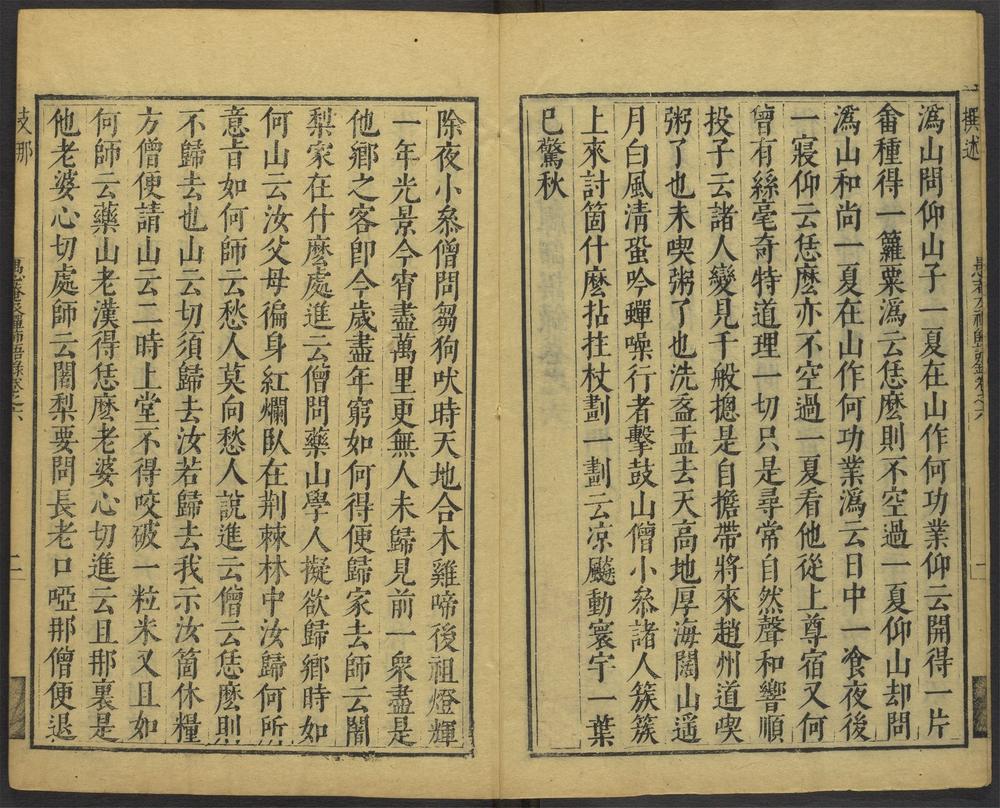 撰述
溈山問仰山子一夏在山作何功業仰云開得一片
畬種得一籮粟溈云恁麼則不空過一夏仰山却問
溈山和尚一夏在山作何功業溈云日中一飡夜後
一寢仰云恁麼亦不空過一夏看他從上尊宿又何
曾有絲毫奇特道理一切只是尋常自然聲和響順
投子云諸人變見千般揔是自擔帶將來趙州道喫
粥了也未喫粥了也洗盋盂去天高地厚海闊山遥
月白風清蛩吟蟬噪行者擊鼓山僧小叅諸人簇簇
上來討箇什麼拈拄杖劃一劃云凉飈動寰宇一葉
已驚秋
除夜小叅僧問芻狗吠時天地合木雞啼後祖燈輝
一年光景今宵盡萬里更無人未歸見前一衆盡是
他鄉之客卽今歲盡年窮如何得便歸家去師云闍
梨家在什麼處進云僧問藥山學人擬欲歸鄉時如
何山云汝父母徧身紅爛臥在荆棘林中汝歸何所
意㫖如何師云愁人莫向愁人說進云僧云恁麼則
不歸去也山云切須歸去汝若歸去我示汝箇休糧
方僧便請山云二時上堂不得咬破一粒米又且如
何師云藥山老漢得恁麼老婆心切進云且那裏是
他老婆心切處師云闍梨要問長老口啞那僧便退
支那
二